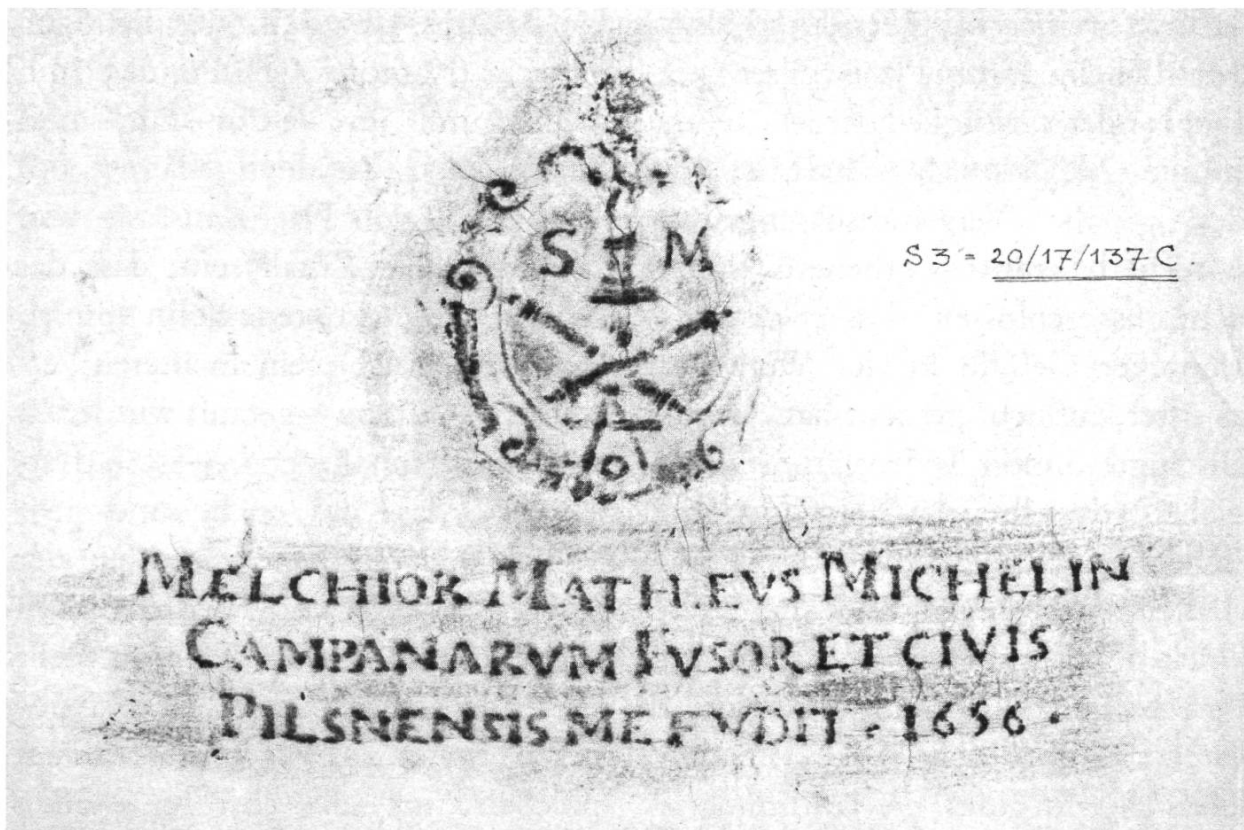 S M
S3 = 20/17/137 C.
MELCHIOR MATHEVS MICHELIN
CAMPANARVM FVSOR ET CIVIS
PILSNENSIS ME FVDIT · 1656 ·